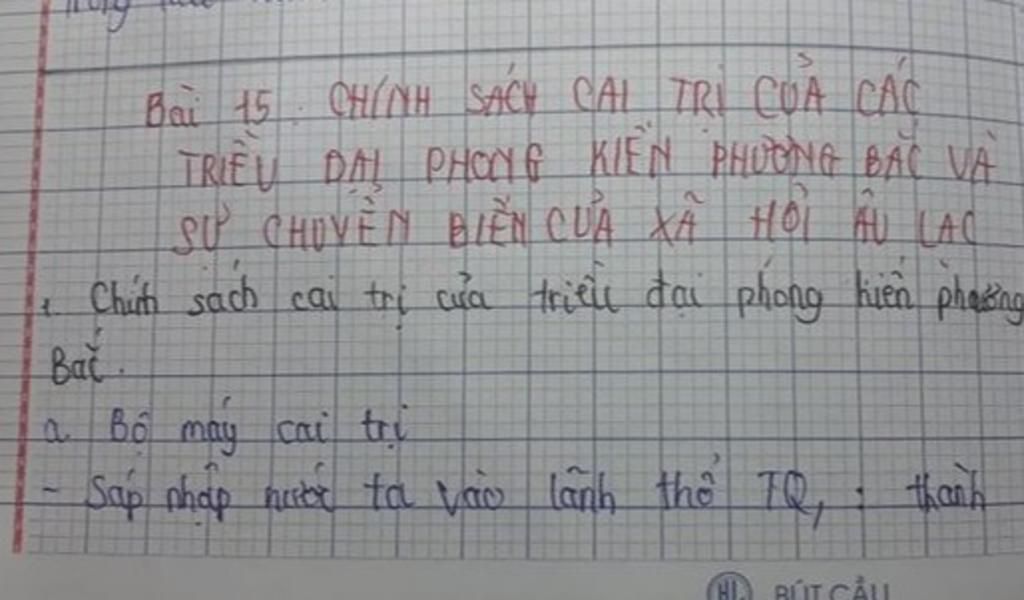 Bài 15. CHÍNH SÁCH CAI TRỊ CỦA CÁC
TRIỀU ĐẠI PHONG KIẾN PHƯƠNG BẮC VÀ
SỰ CHUYỂN BIẾN CỦA XÃ HỘI ÂU LẠC
1. Chính sách cai trị của triều đại phong kiến phương
Bắc.
a. Bộ máy cai trị
- Sáp nhập nước ta vào lãnh thổ TQ, : thành
BÚT CẦU